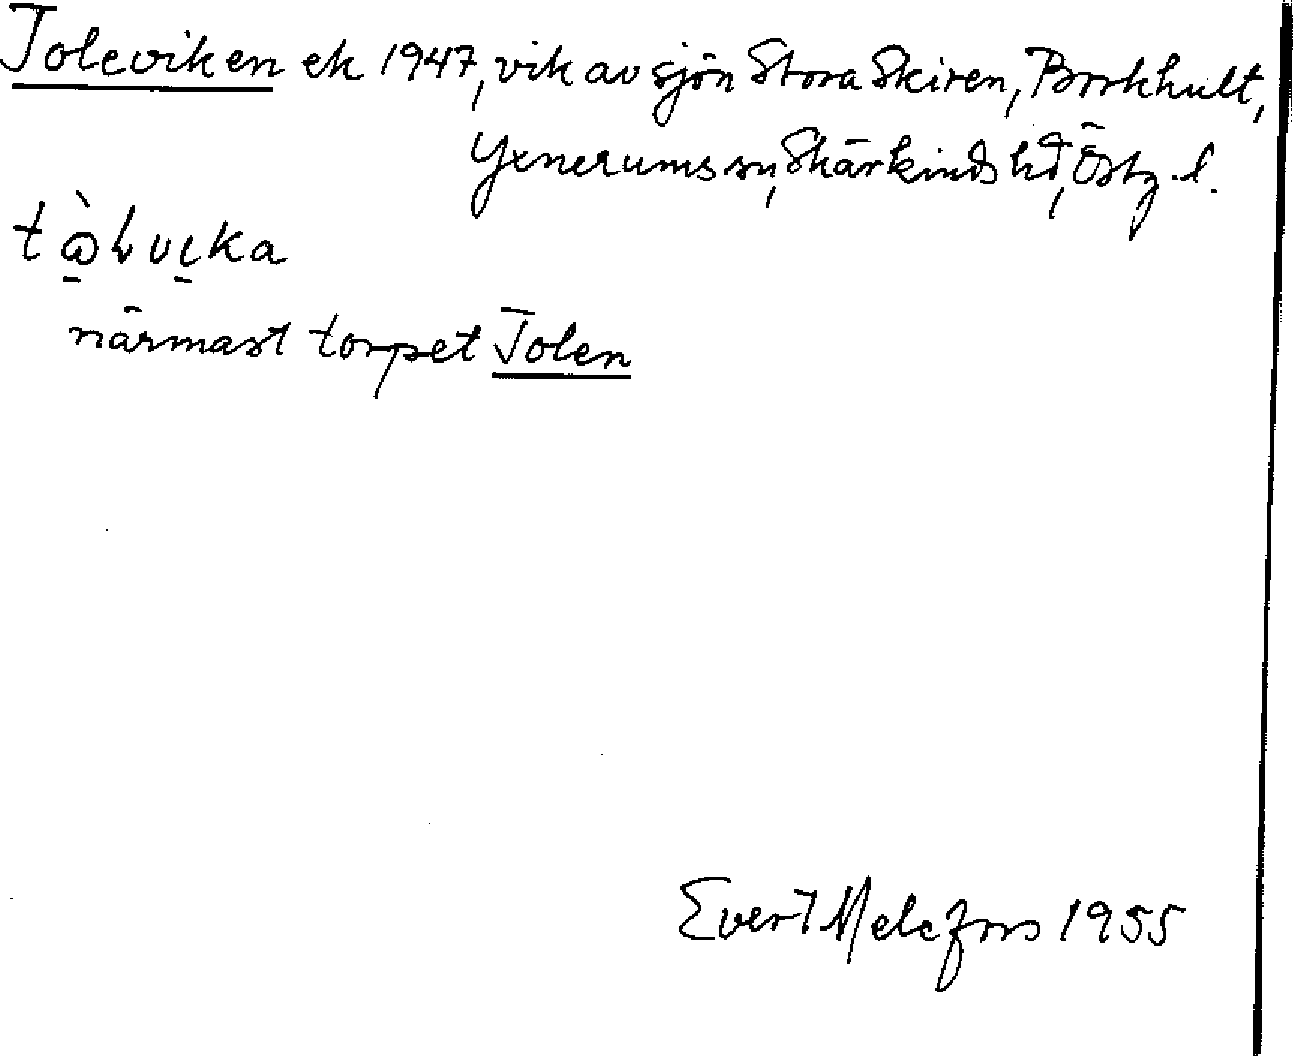 Toleviken ek 1947, vik av sjön Stora Skiren, Borkhult,
Yxnerums sn, Skärkinds hd, Östg. l.
närmast torpet Tolen
Evert Melefors 1955